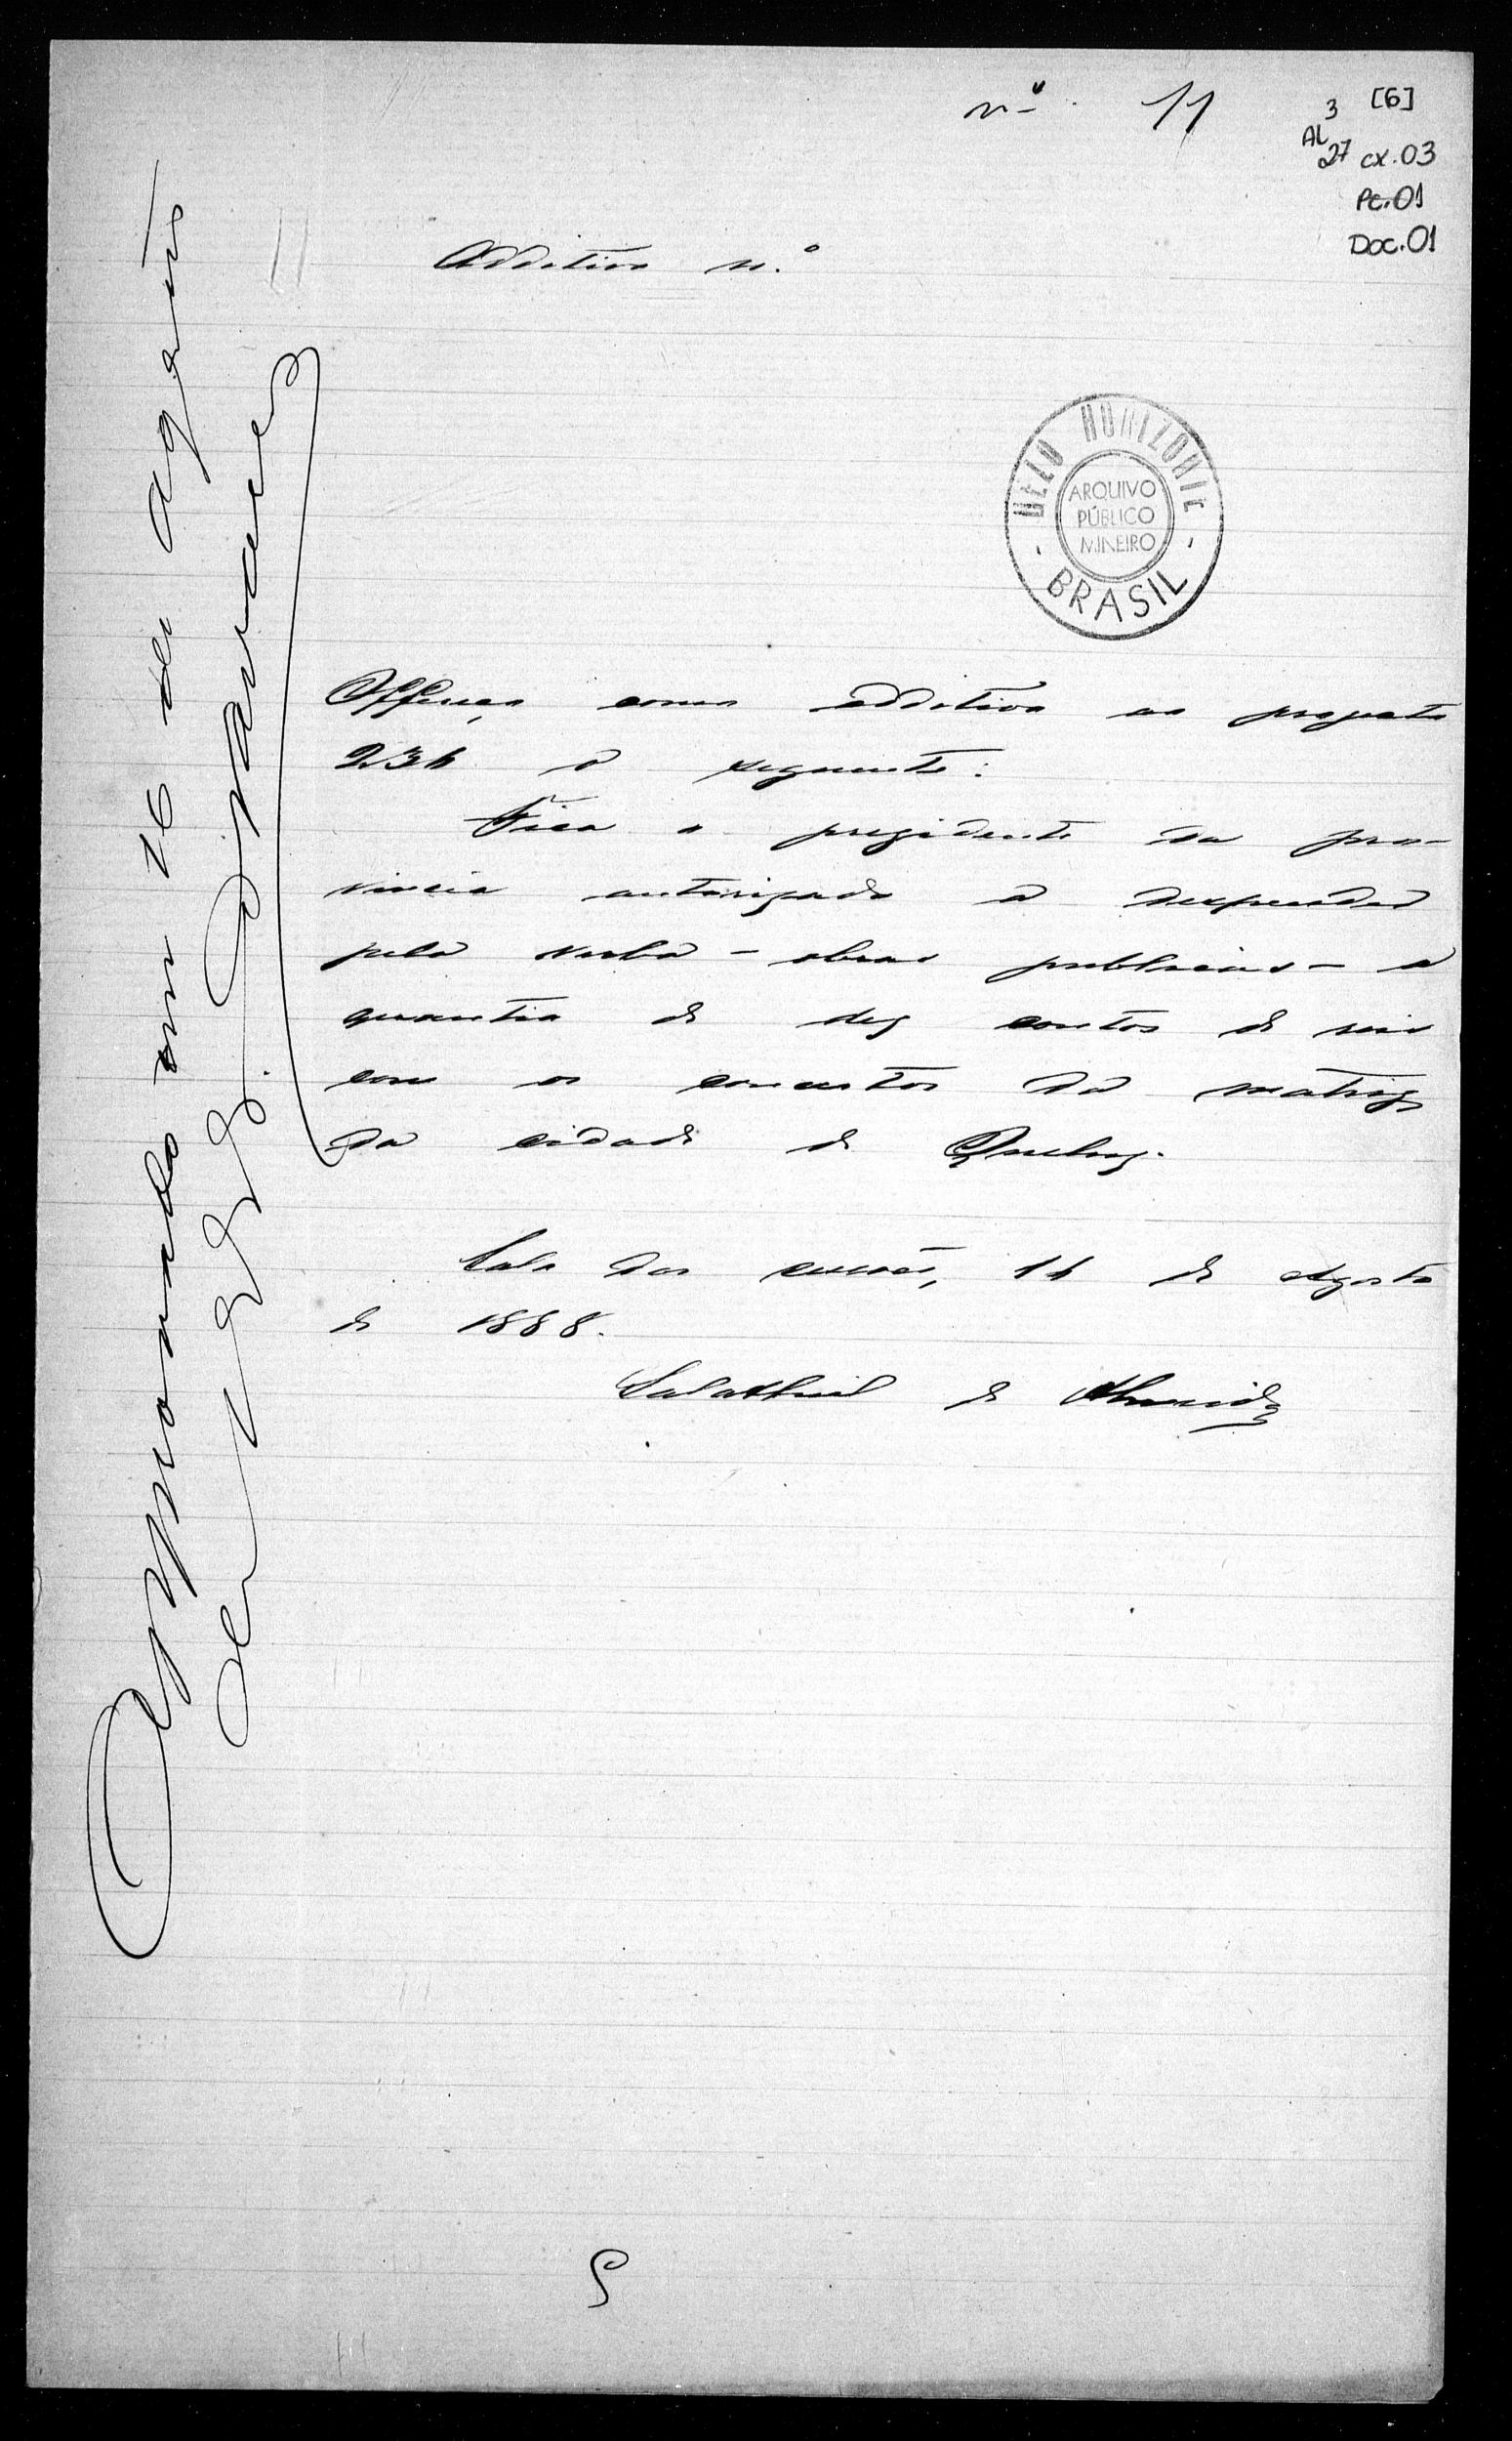 nº 11
[6]
AL 3
27 cx.03
Pc.01
Doc.01
Additivo n.º
BELLO HORIZONTE
ARQUIVO
PÚBLICO
MINEIRO
- BRASIL -
Offereço como additivo ao projecto
236 o seguinte:
Fica o prezidente da pro-
vincia autorizado a despender
pela verba - obras publicas - a
quantia de dez contos de reis
com os concertos da matriz
da cidade de Queluz.
Sala das sessões, 16 de Agosto
de 1888.
Salathiel de Almeida
em 16 de Agosto
de 1888.